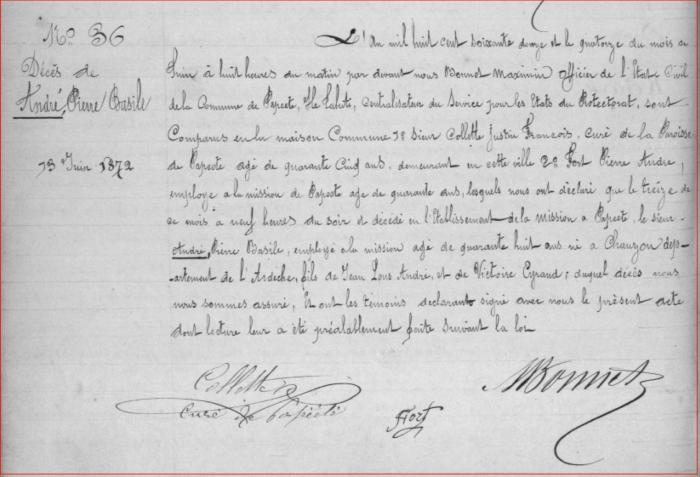 No 36
Décès de
André, Pierre Basile
13 Juin 1872
L'An mil huit cent soixante douze et le quatorze du mois de
Juin à huit heures du matin par devant nous Bonnet Maximin Officier de l'Etat Civil
de la Commune de Papeete, Ile Tahite, Centralisateur du Service pour les Etats du Protectorat, sont
Comparus en la maison Commune 1º Sieur Collette Justin François, curé de la Paroisse
de Papeete agé de quarante Cinq ans, demeurant en cette ville 2º Fort Pierre André,
employé à la mission de Papeete age de quarante ans, lesquels nous ont déclaré que le treize de
ce mois à neuf heures du soir est décédé en l'Etablissement de la mission a Papeete, le sieur
André, Pierre Basile, employé à la mission agé de quarante huit ans né a Chauzon dep-
artement de l'Ardèche, fils de Jean Louis André, et de Victoire Eyraud; duquel décès nous
nous sommes assuré, Et ont les témoins déclarant signé avec nous le présent acte
dont lecture leur a été préalablement faite suivant la loi
Collette
curé de Papeete
Fort
MBonnet